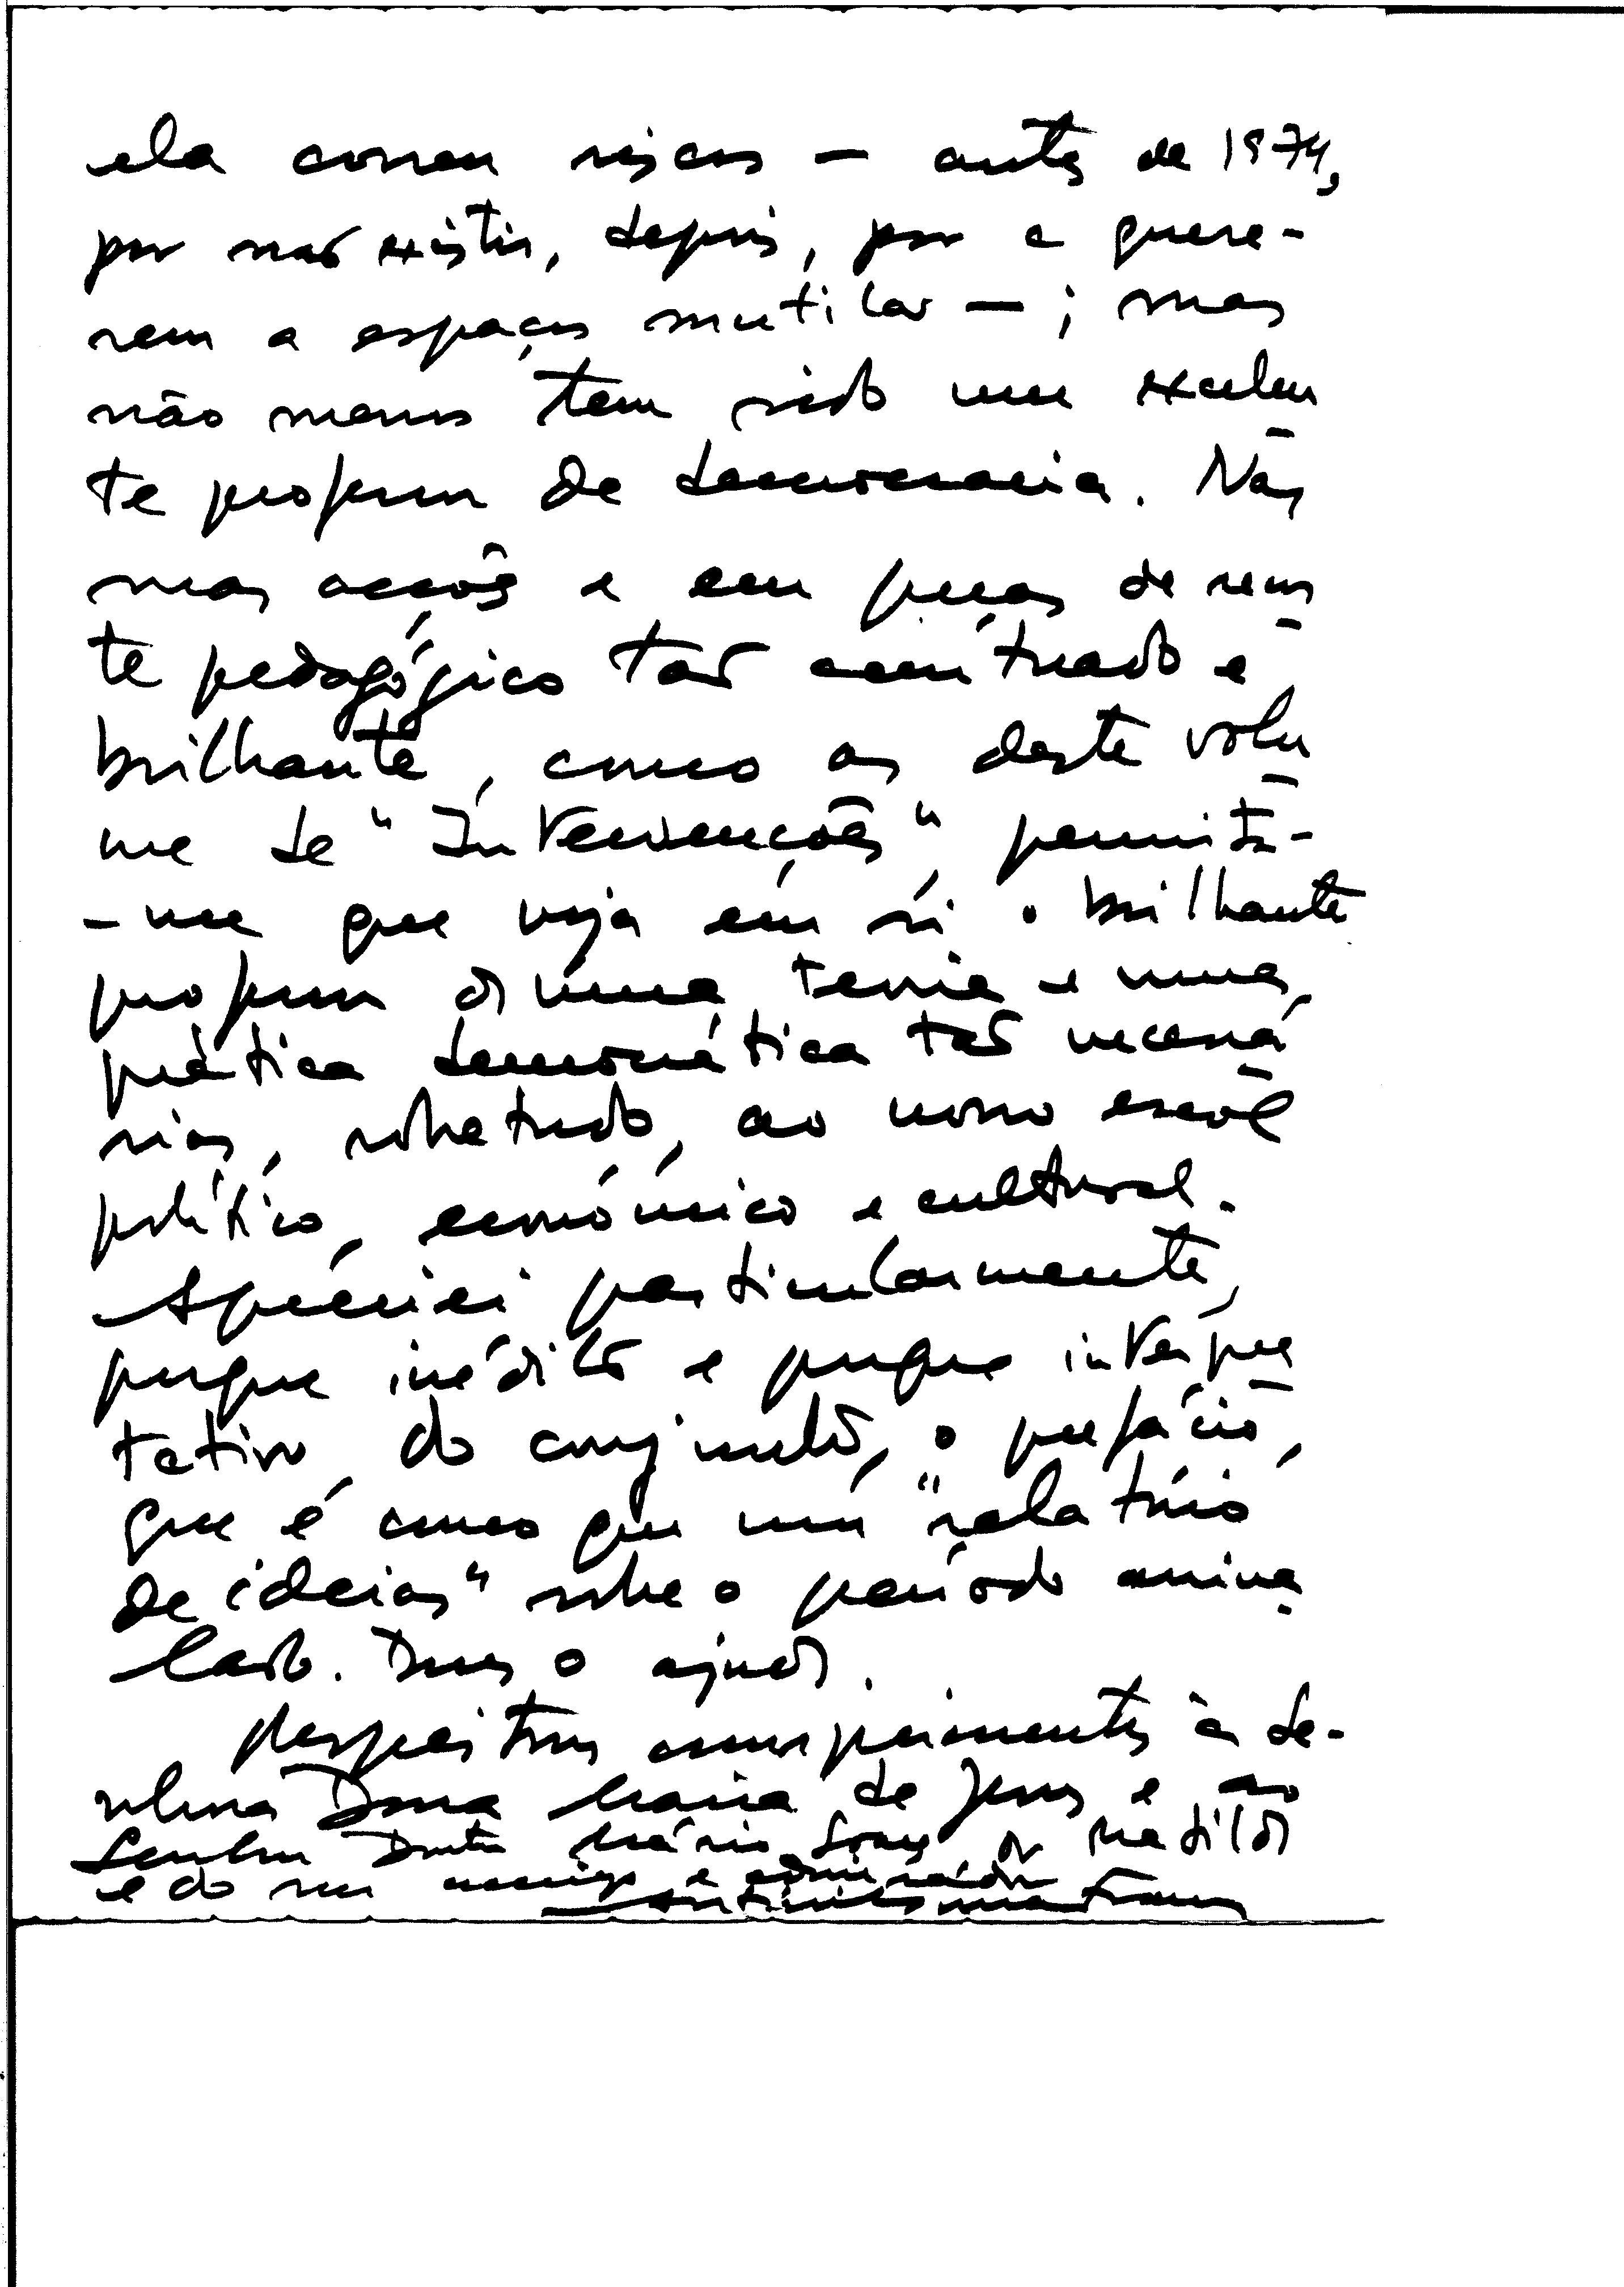 ela correu riscos — antes de 1974,
por não existir, depois, por a quere-
rem a espaços mutilar —; mas
não menos tem sido um excelen
te professor de democracia. Nas
suas acções e em peças de recor
te pedagógico tão acentuado e
brilhante, como as deste volu
me de "Intervenções", permita-
-me que veja em si o brilhante
professor duma teoria e numa
prática democrática tão necessá
rias, sobretudo, ao nosso escol
político, económico e cultural.
Apreciei particularmente,
porque inédito e porque interpre
tativo do conjunto, o prefácio,
que é como que um "relatório
de ideias" sobre o período assina
lado. Deus o ajude.
Respeitosos cumprimentos à Se-
nhora Dona Maria de Jesus e ao
Senhor Doutor Mário Soares da Matilde
e do seu amigo e admirador